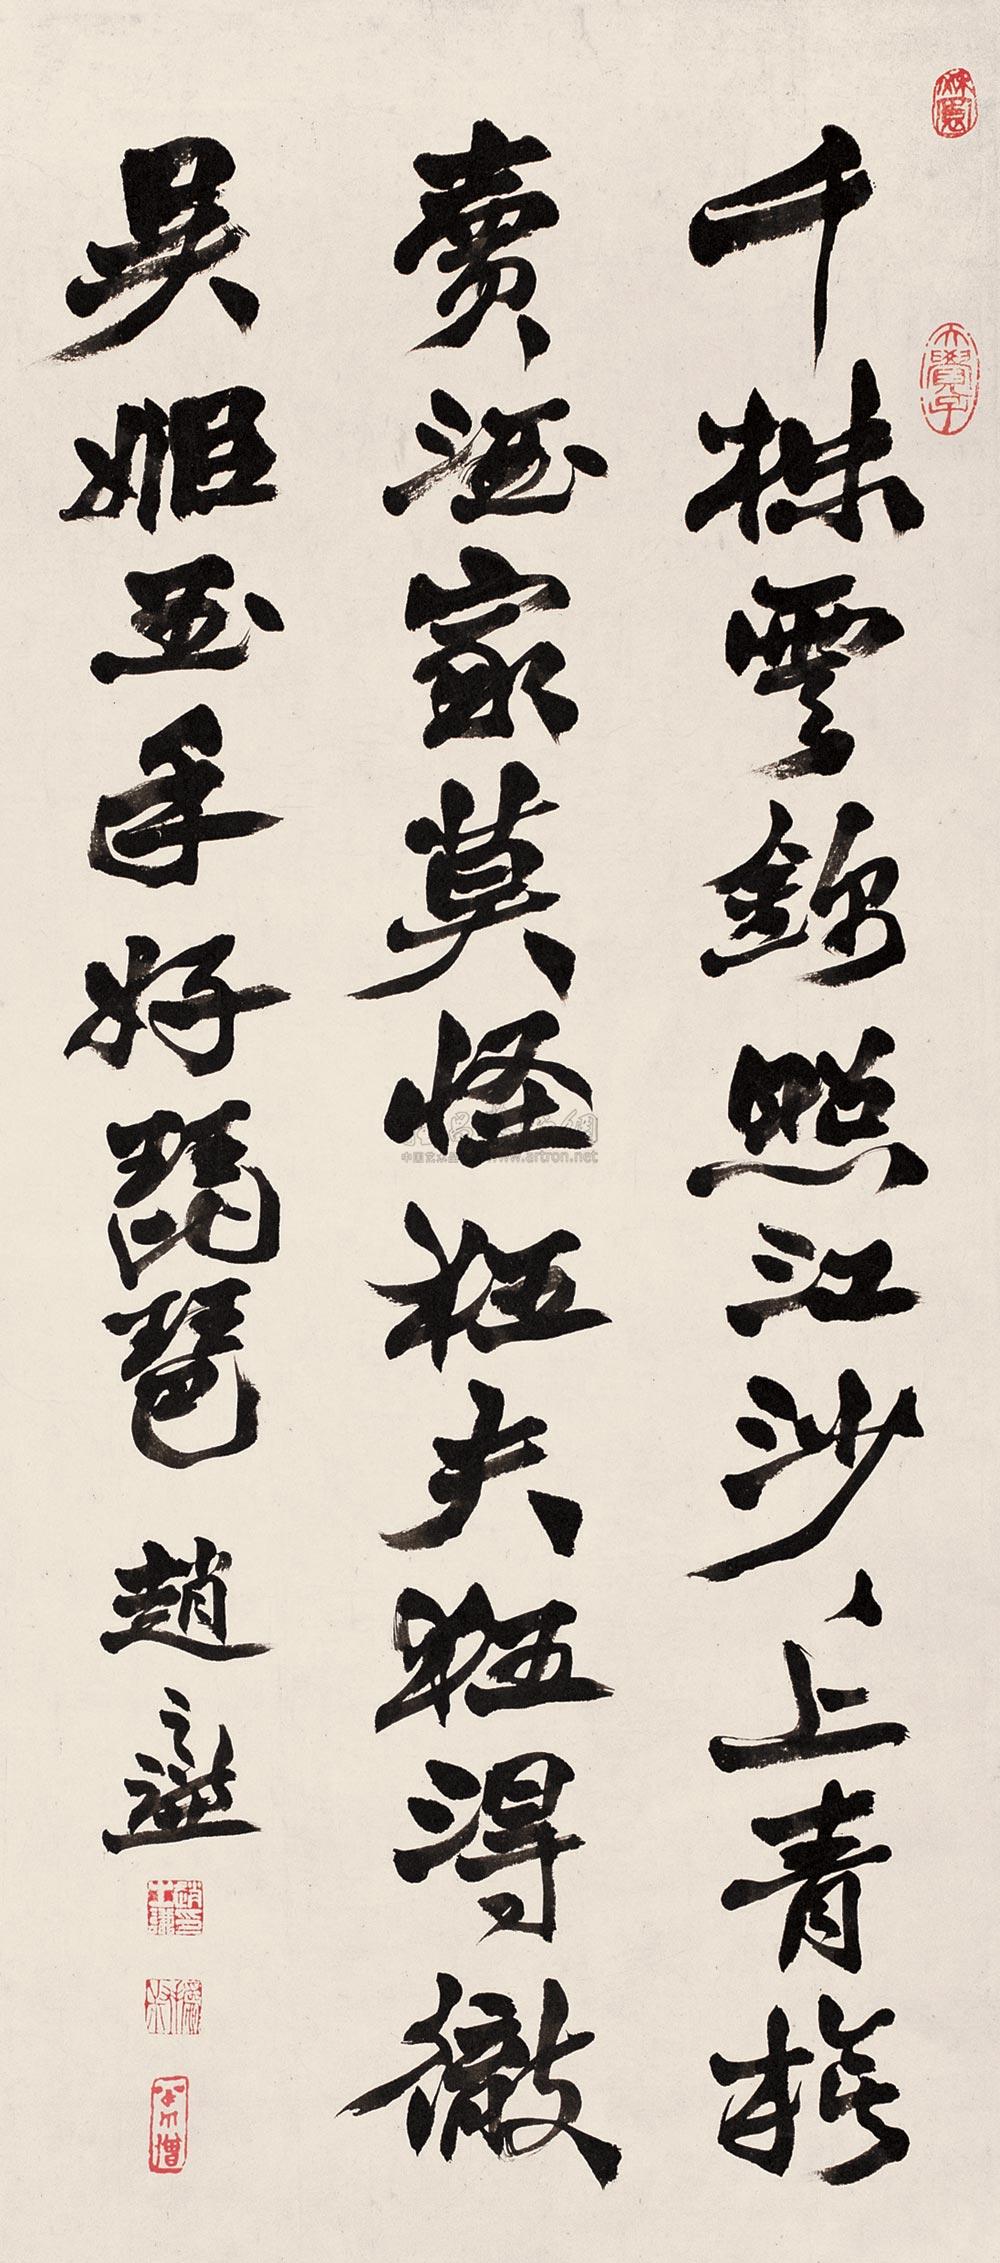 千株雲錦照江沙、上青旗
賣酒家莫怪狂夫狂得徹
吳姬玉手好琵琶 趙之謙
www.artron.net